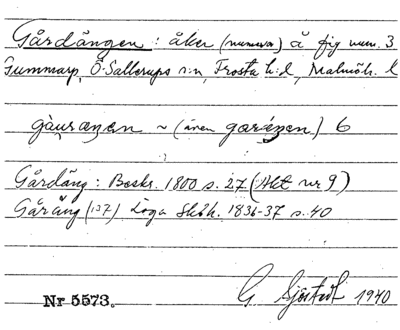 Gårdängen : åker (numera) å fig num. 3
Gummarp, Ö. Sallerups s:n, Frosta h:d, Malmöh. l
gàurængen ~ (även garængen) 6
Gårdäng : Beskr. 1800 s. 27 (Akt nr 9)
Gåräng (137) Laga Skh. 1836-37 s. 40
Nr 5573. G. Sjöstedt 1940